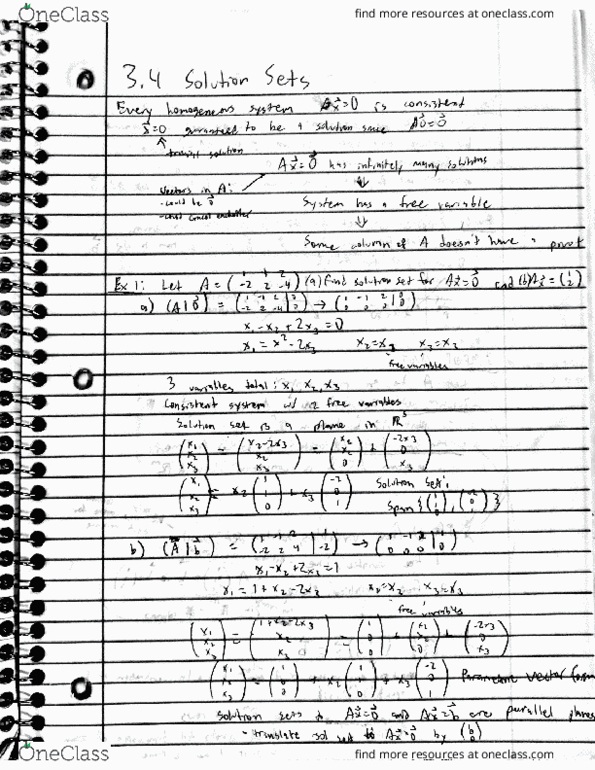 OneClass find more resources at oneclass.com
3.4 Solution Sets
Every homogeneous system Ax⃗=0 is consistent
x⃗=0 guaranteed to be a solution since A0⃗=0⃗
trivial solution
Ax⃗=0⃗ has infinitely many solutions
Vectors in A:
-could be 0⃗
System has a free variable
Some column of A doesn't have a pivot
Ex 1: Let A = (1 -1 2; -2 2 -4) (a) Find solution set for Ax⃗=0⃗ and (b) Ax⃗=
a) (A|0⃗) = → (1 -1 2 | 0; 0 0 0 | 0)
x₁-x₂+2x₃=0
x₁=x₂-2x₃ x₂=x₂ x₃=x₃
free variables
3 variables total: x₁ x₂, x₃
Consistent system w/ 2 free variables
Solution set is a plane in R³
(x₁; x₂; x₃) = (x₂-2x₃; x₂; x₃) = (x₂; x₂; 0) + (-2x₃; 0; x₃)
(x₁; x₂; x₃) = x₂(1; 1; 0) + x₃(-2; 0; 1) Solution set:
Span {(1; 1; 0), (-2; 0; 1)}
b) (A|b⃗) = → (1 -1 2 | 1; 0 0 0 | 0)
x₁-x₂+2x₃=1
x₁=1+x₂-2x₃ x₂=x₂ x₃=x₃
free variables
(x₁; x₂; x₃) = (1+x₂-2x₃; x₂; x₃) = (1; 0; 0) + (x₂; x₂; 0) + (-2x₃; 0; x₃)
(x₁; x₂; x₃) = (1; 0; 0) + x₂(1; 1; 0) + x₃(-2; 0; 1) Parametric Vector Form
solution sets to Ax⃗=0⃗ and Ax⃗=b⃗ are parallel planes
- translate sol set to Ax⃗=0⃗ by
OneClass find more resources at oneclass.com